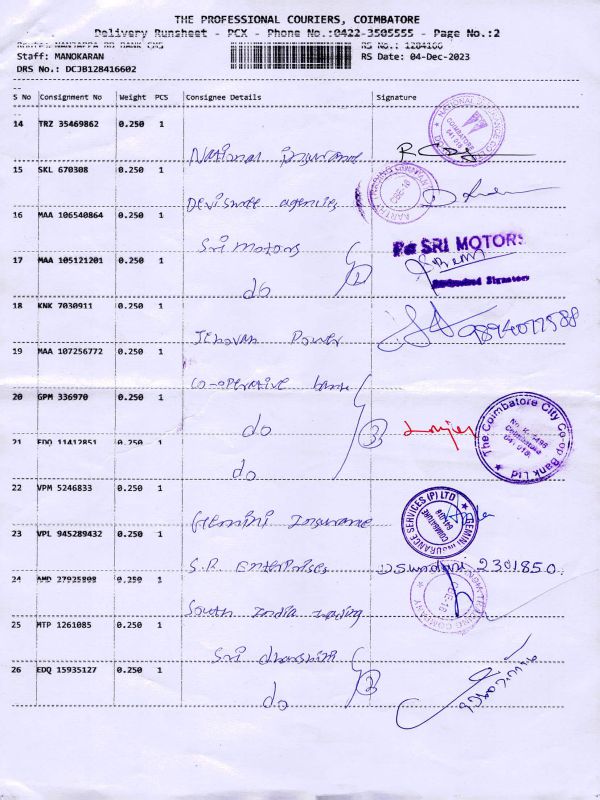 THE PROFESSIONAL COURIERS, COIMBATORE
Delivery Runsheet - PCX - Phone No.:0422-3505555 - Page No.:2
Route: NANJAPPA RD BANK CHS
RS No.: 1284166
Staff: MANOKARAN
RS Date: 04-Dec-2023
DRS No.: DCJB128416602
S No Consignment No Weight PCS Consignee Details Signature
14 TRZ 35469862 0.250 1
National Insurance
15 SKL 670308 0.250 1
Devisree agencies
16 MAA 106540864 0.250 1
Sri Motors
For SRI MOTORS
17 MAA 105121201 0.250 1
do 2
Authorised Signatory
18 KNK 7030911 0.250 1
Jehovah Power
9894077588
19 MAA 107256772 0.250 1
Co-operative bank
20 GPM 336970 0.250 1
do 3
The Coimbatore City Co-op Bank Ltd
21 EDQ 11412851 0.250 1
do
22 VPM 5246833 0.250 1
Gemini Insurance
GEMINI INSURANCE SERVICES (P) LTD
COIMBATORE
23 VPL 945289432 0.250 1
S.R. Enterprises
2301850
24 AMD 0.250 1
South India trading
25 MTP 1261085 0.250 1
Sri dharshini
26 EDQ 15935127 0.250 1
do 2